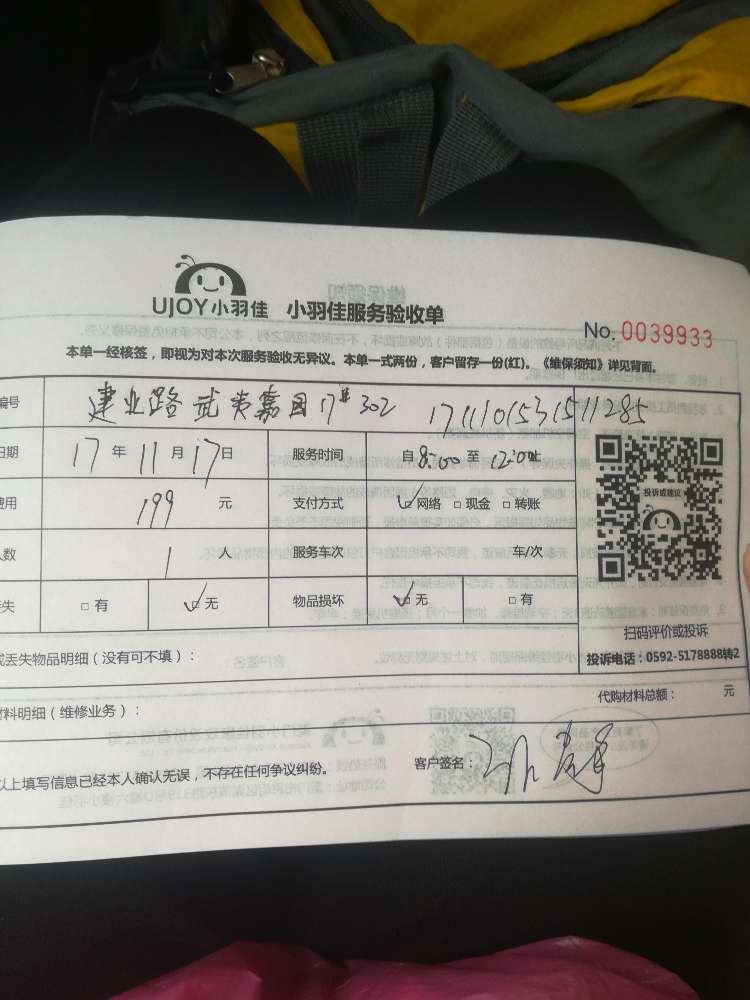 UJOY小羽佳 小羽佳服务验收单
No. 0039933
本单一经核签，即视为对本次服务验收无异议。本单一式两份，客户留存一份(红)。《维保须知》详见背面。
编号 建业路武夷嘉园17# 302 1711101531511285
日期 17 年 11 月 17 日 服务时间 自 8:00 至 12:00止
费用 199 元 支付方式 网络 □ 现金 □ 转账
人数 1 人 服务车次 车/次
丢失 □ 有 □ 无 物品损坏 □ 无 □ 有
投诉或建议
扫码评价或投诉
投诉电话：0592-5178888转2
或丢失物品明细（没有可不填）：
代购材料总额： 元
材料明细（维修业务）：
以上填写信息已经本人确认无误，不存在任何争议纠纷。 客户签名：